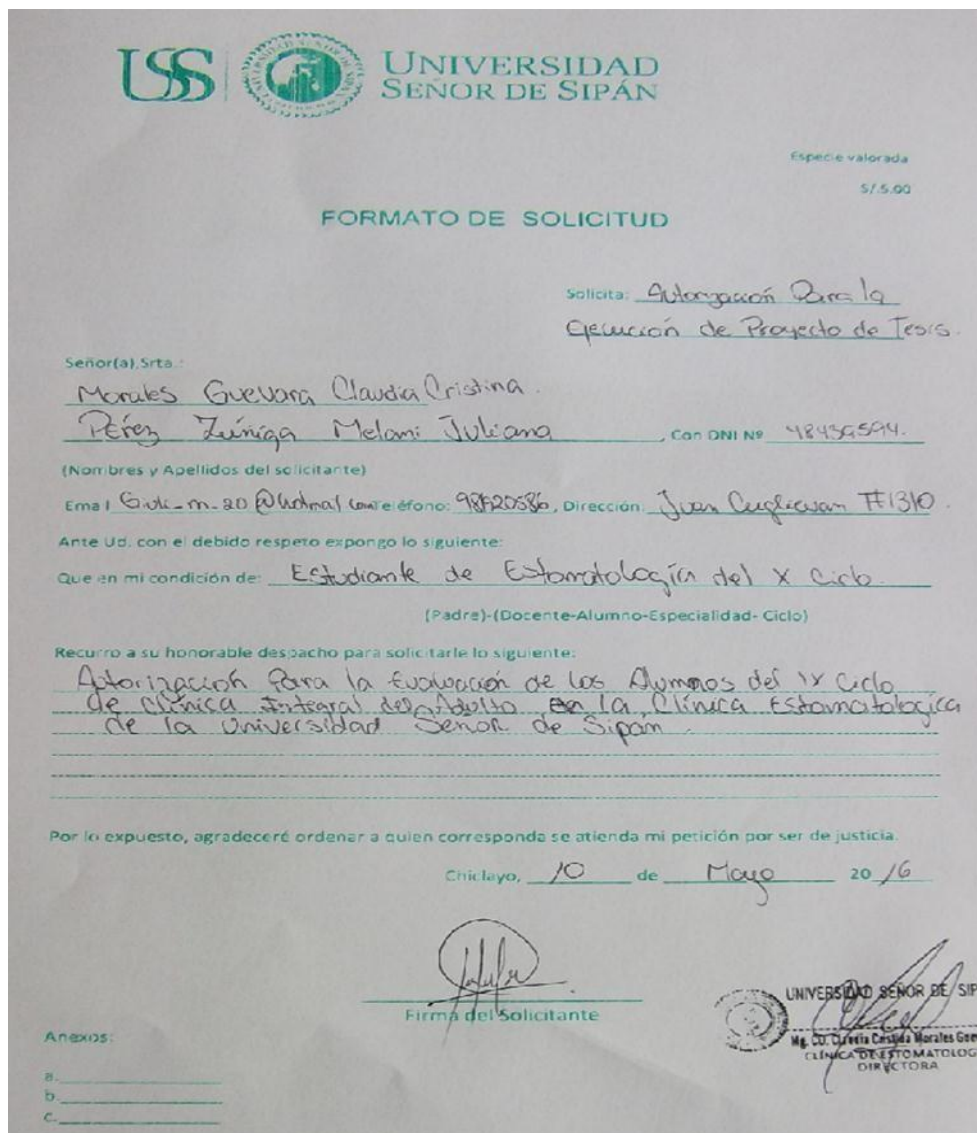 USS UNIVERSIDAD
SEÑOR DE SIPÁN
Especie valorada
S/.5.00
FORMATO DE SOLICITUD
Solicita: Autorización Para la
Ejecución de Proyecto de Tesis.
Señor(a),Srta.:
Morales Guevara Claudia Cristina.
Pérez Zúñiga Melani Juliana, Con DNI Nº
(Nombres y Apellidos del solicitante)
Email Teléfono: , Dirección: Juan #1310.
Ante Ud. con el debido respeto expongo lo siguiente:
Que en mi condición de: Estudiante de Estomatología del X Ciclo.
(Padre)-(Docente-Alumno-Especialidad- Ciclo)
Recurro a su honorable despacho para solicitarle lo siguiente:
Autorización Para la Evaluación de los Alumnos del IX Ciclo
de Clínica Integral del Adulto en la Clínica Estomatologica
de la Universidad Señor de Sipán.
Por lo expuesto, agradeceré ordenar a quien corresponda se atienda mi petición por ser de justicia.
Chiclayo, 10 de Mayo 20 16
Firma del Solicitante
UNIVERSIDAD SEÑOR DE SIP
Mg. CD. Claudia Cristina Morales Gue
CLÍNICA DE ESTOMATOLOG
DIRECTORA
Anexos:
a.
b.
c.